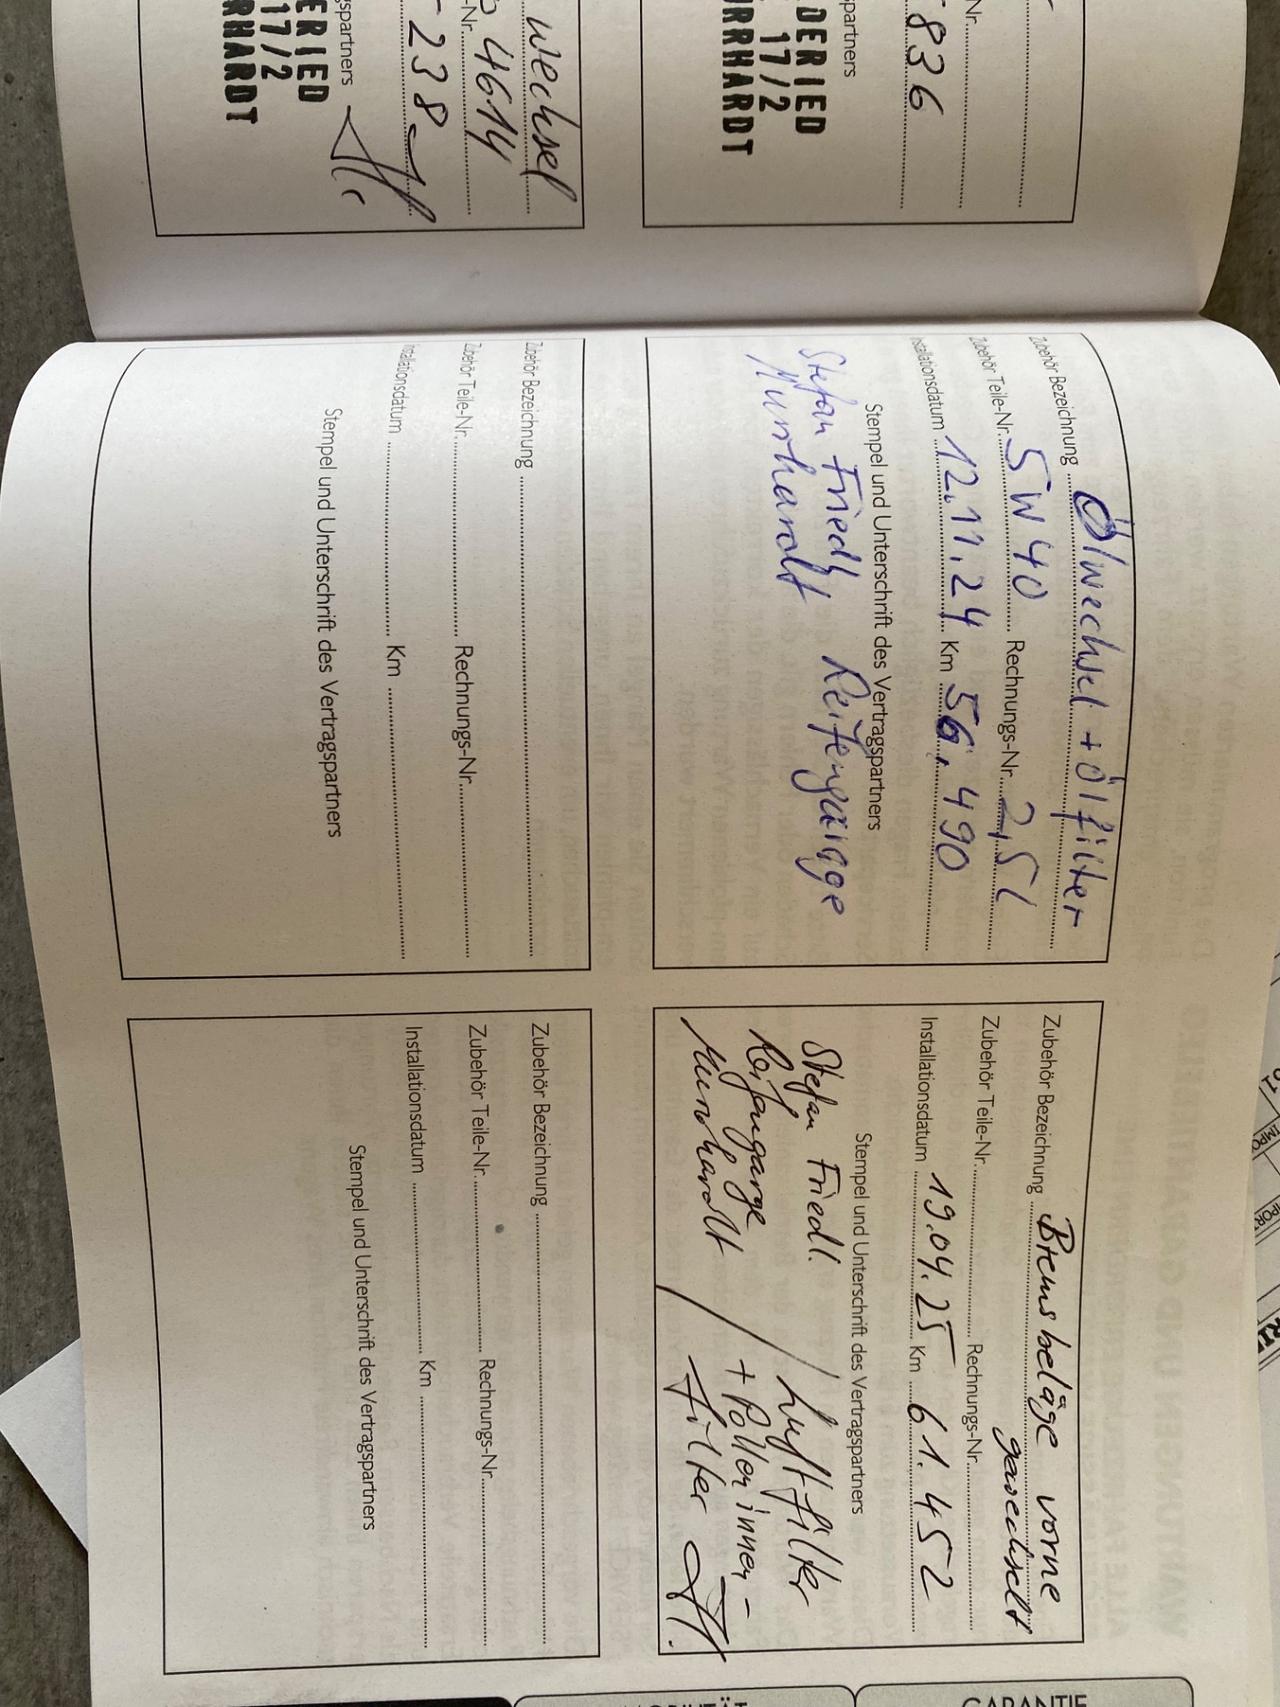 836
Nr.
partners
DERIED
17/2
URRHARDT
wechsel
4614
-Nr.
238
spartners
ERIED
17/2
RHARDT
Zubehör Bezeichnung Ölwechsel + Ölfilter
Zubehör Teile-Nr. 5W40 Rechnungs-Nr. 2,5l
Installationsdatum 12.11.24 Km 56.490
Stempel und Unterschrift des Vertragspartners
Stefan Friedl Reifengarage
Murrhardt
Zubehör Bezeichnung
Zubehör Teile-Nr. Rechnungs-Nr.
Installationsdatum Km
Stempel und Unterschrift des Vertragspartners
Zubehör Bezeichnung Bremsbeläge vorne
gewechselt
Zubehör Teile-Nr. Rechnungs-Nr.
Installationsdatum 19.04.25 Km 61.452
Stempel und Unterschrift des Vertragspartners
Stefan Friedl. / Luftfilter
Reifengarge + Polleninnen-
Murrhardt / Filter
Zubehör Bezeichnung
Zubehör Teile-Nr. Rechnungs-Nr.
Installationsdatum Km
Stempel und Unterschrift des Vertragspartners
GARANTIE